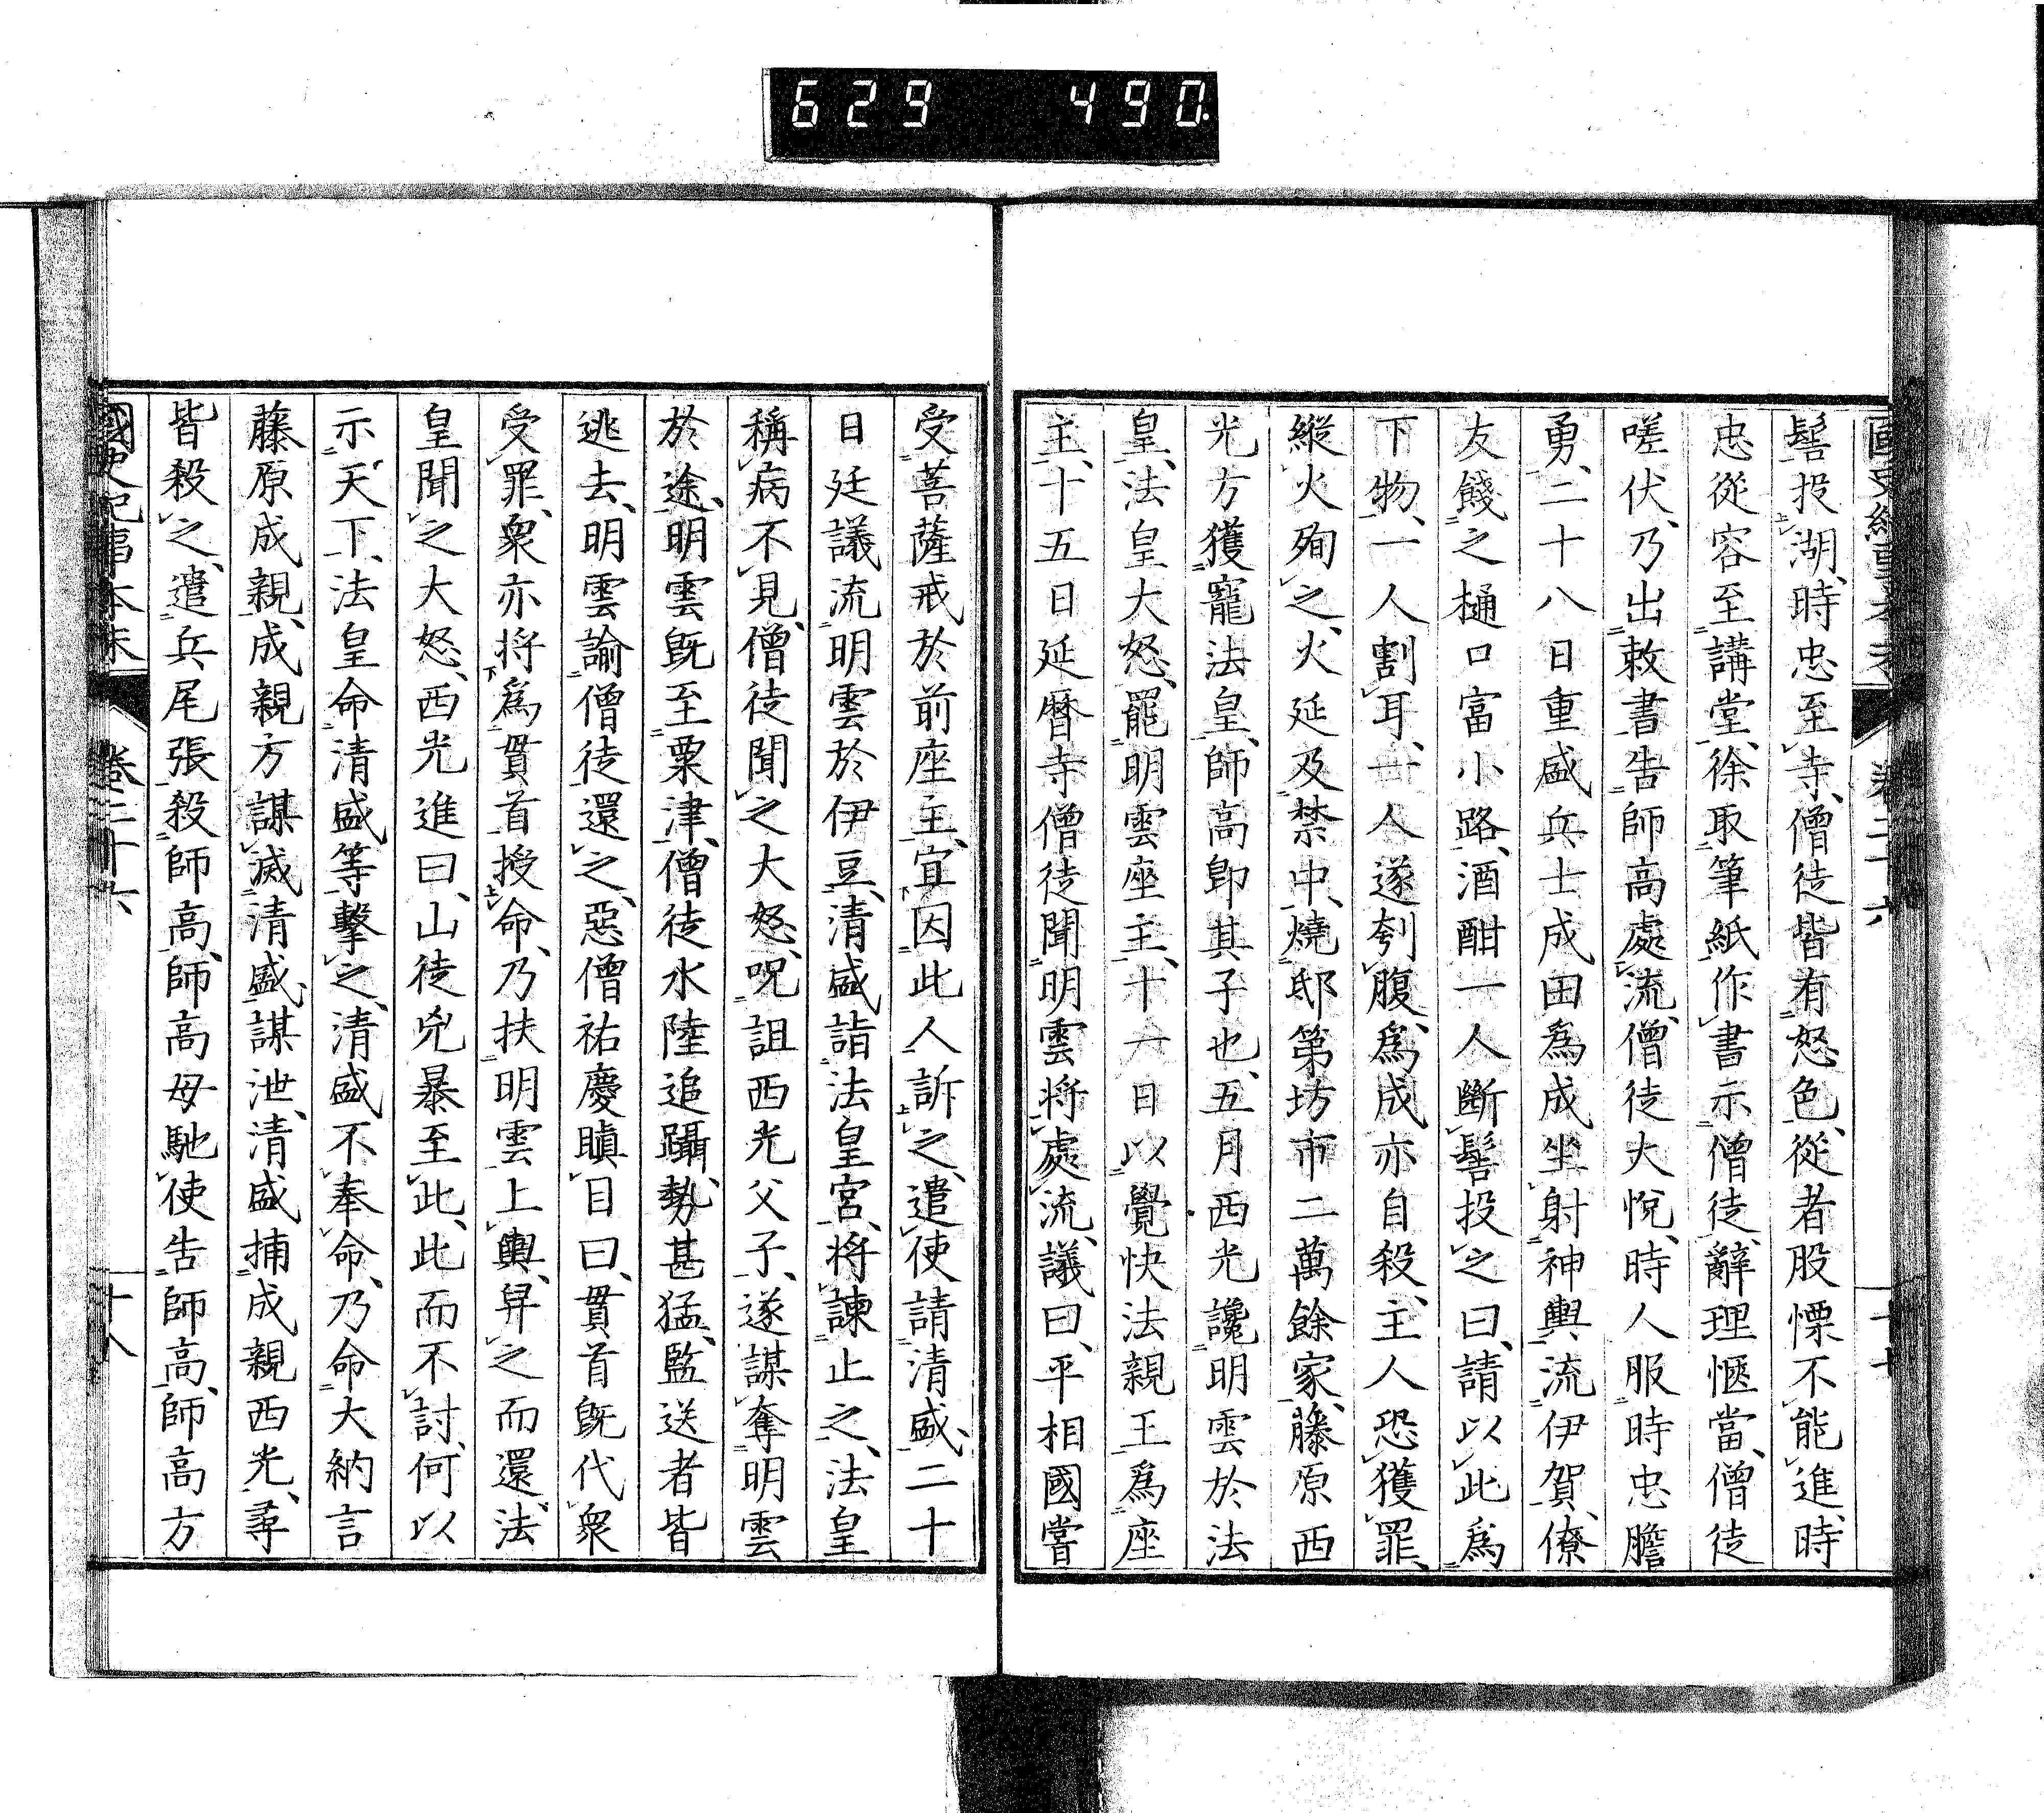 629 490.
髻投湖、時忠至寺、僧徒皆有怒色、從者股慄不能進、時
忠從容至講堂、徐取筆紙作書示僧徒、辭理愜當、僧徒
嗟伏、乃出敕書告師高處流、僧徒大悅、時人服時忠膽
勇、二十八日重盛兵士成田爲成坐射神輿流伊賀、僚
友餞之樋口富小路、酒酣一人斷髻投之曰、請以此爲
下物、一人割耳、一人遂刳腹、爲成亦自殺、主人恐獲罪、
縱火殉之、火延及禁中、燒邸第坊市二萬餘家、藤原西
光方獲寵法皇、師高卽其子也、五月西光讒明雲於法
皇、法皇大怒、罷明雲座主、十一日以覺快法親王爲座
主、十五日延曆寺僧徒聞明雲將處流、議曰、平相國嘗
受菩薩戒於前座主、宜因此人訴之、遣使請清盛、二十
日廷議流明雲於伊豆、清盛詣法皇宮、將諫止之、法皇
稱病不見、僧徒聞之大怒、呪詛西光父子、遂謀奪明雲
於途、明雲既至粟津、僧徒水陸追躡、勢甚猛、監送者皆
逃去、明雲諭僧徒還之、惡僧祐慶瞋目曰、貫首既代衆
受罪、衆亦將爲貫首授命、乃扶明雲上輿、舁之而還、法
皇聞之大怒、西光進曰、山徒兇暴至此、此而不討、何以
示天下、法皇命清盛等擊之、清盛不奉命、乃命大納言
藤原成親、成親方謀滅清盛、謀泄、清盛捕成親西光、尋
皆殺之、遣兵尾張殺師高、師高母馳使告師高、師高方
國史紀事本末 卷二十六 十八